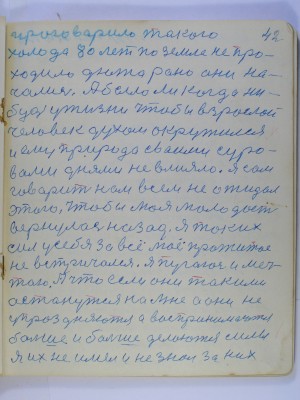 проговарило такого 42
холода 80 лет по земле не про-
ходило да так рано они на-
чались. А было ли когда ни-
будь у жизни чтобы взрослой
человек духом окружился
и ему природа своими суро-
вами днями не влияло. Я сам
говарит нам всем не ожидал
этого, чтобы моя молодост
вернулась назад. Я таких
сил у себя за всё моё прожитое
не встречался. Я пугаюс и меч-
таю. А что если они такими
останутся на мне а они не
упраздняются а воспринимаются
больше и больше делаются силы
я их не имел и не знал за них